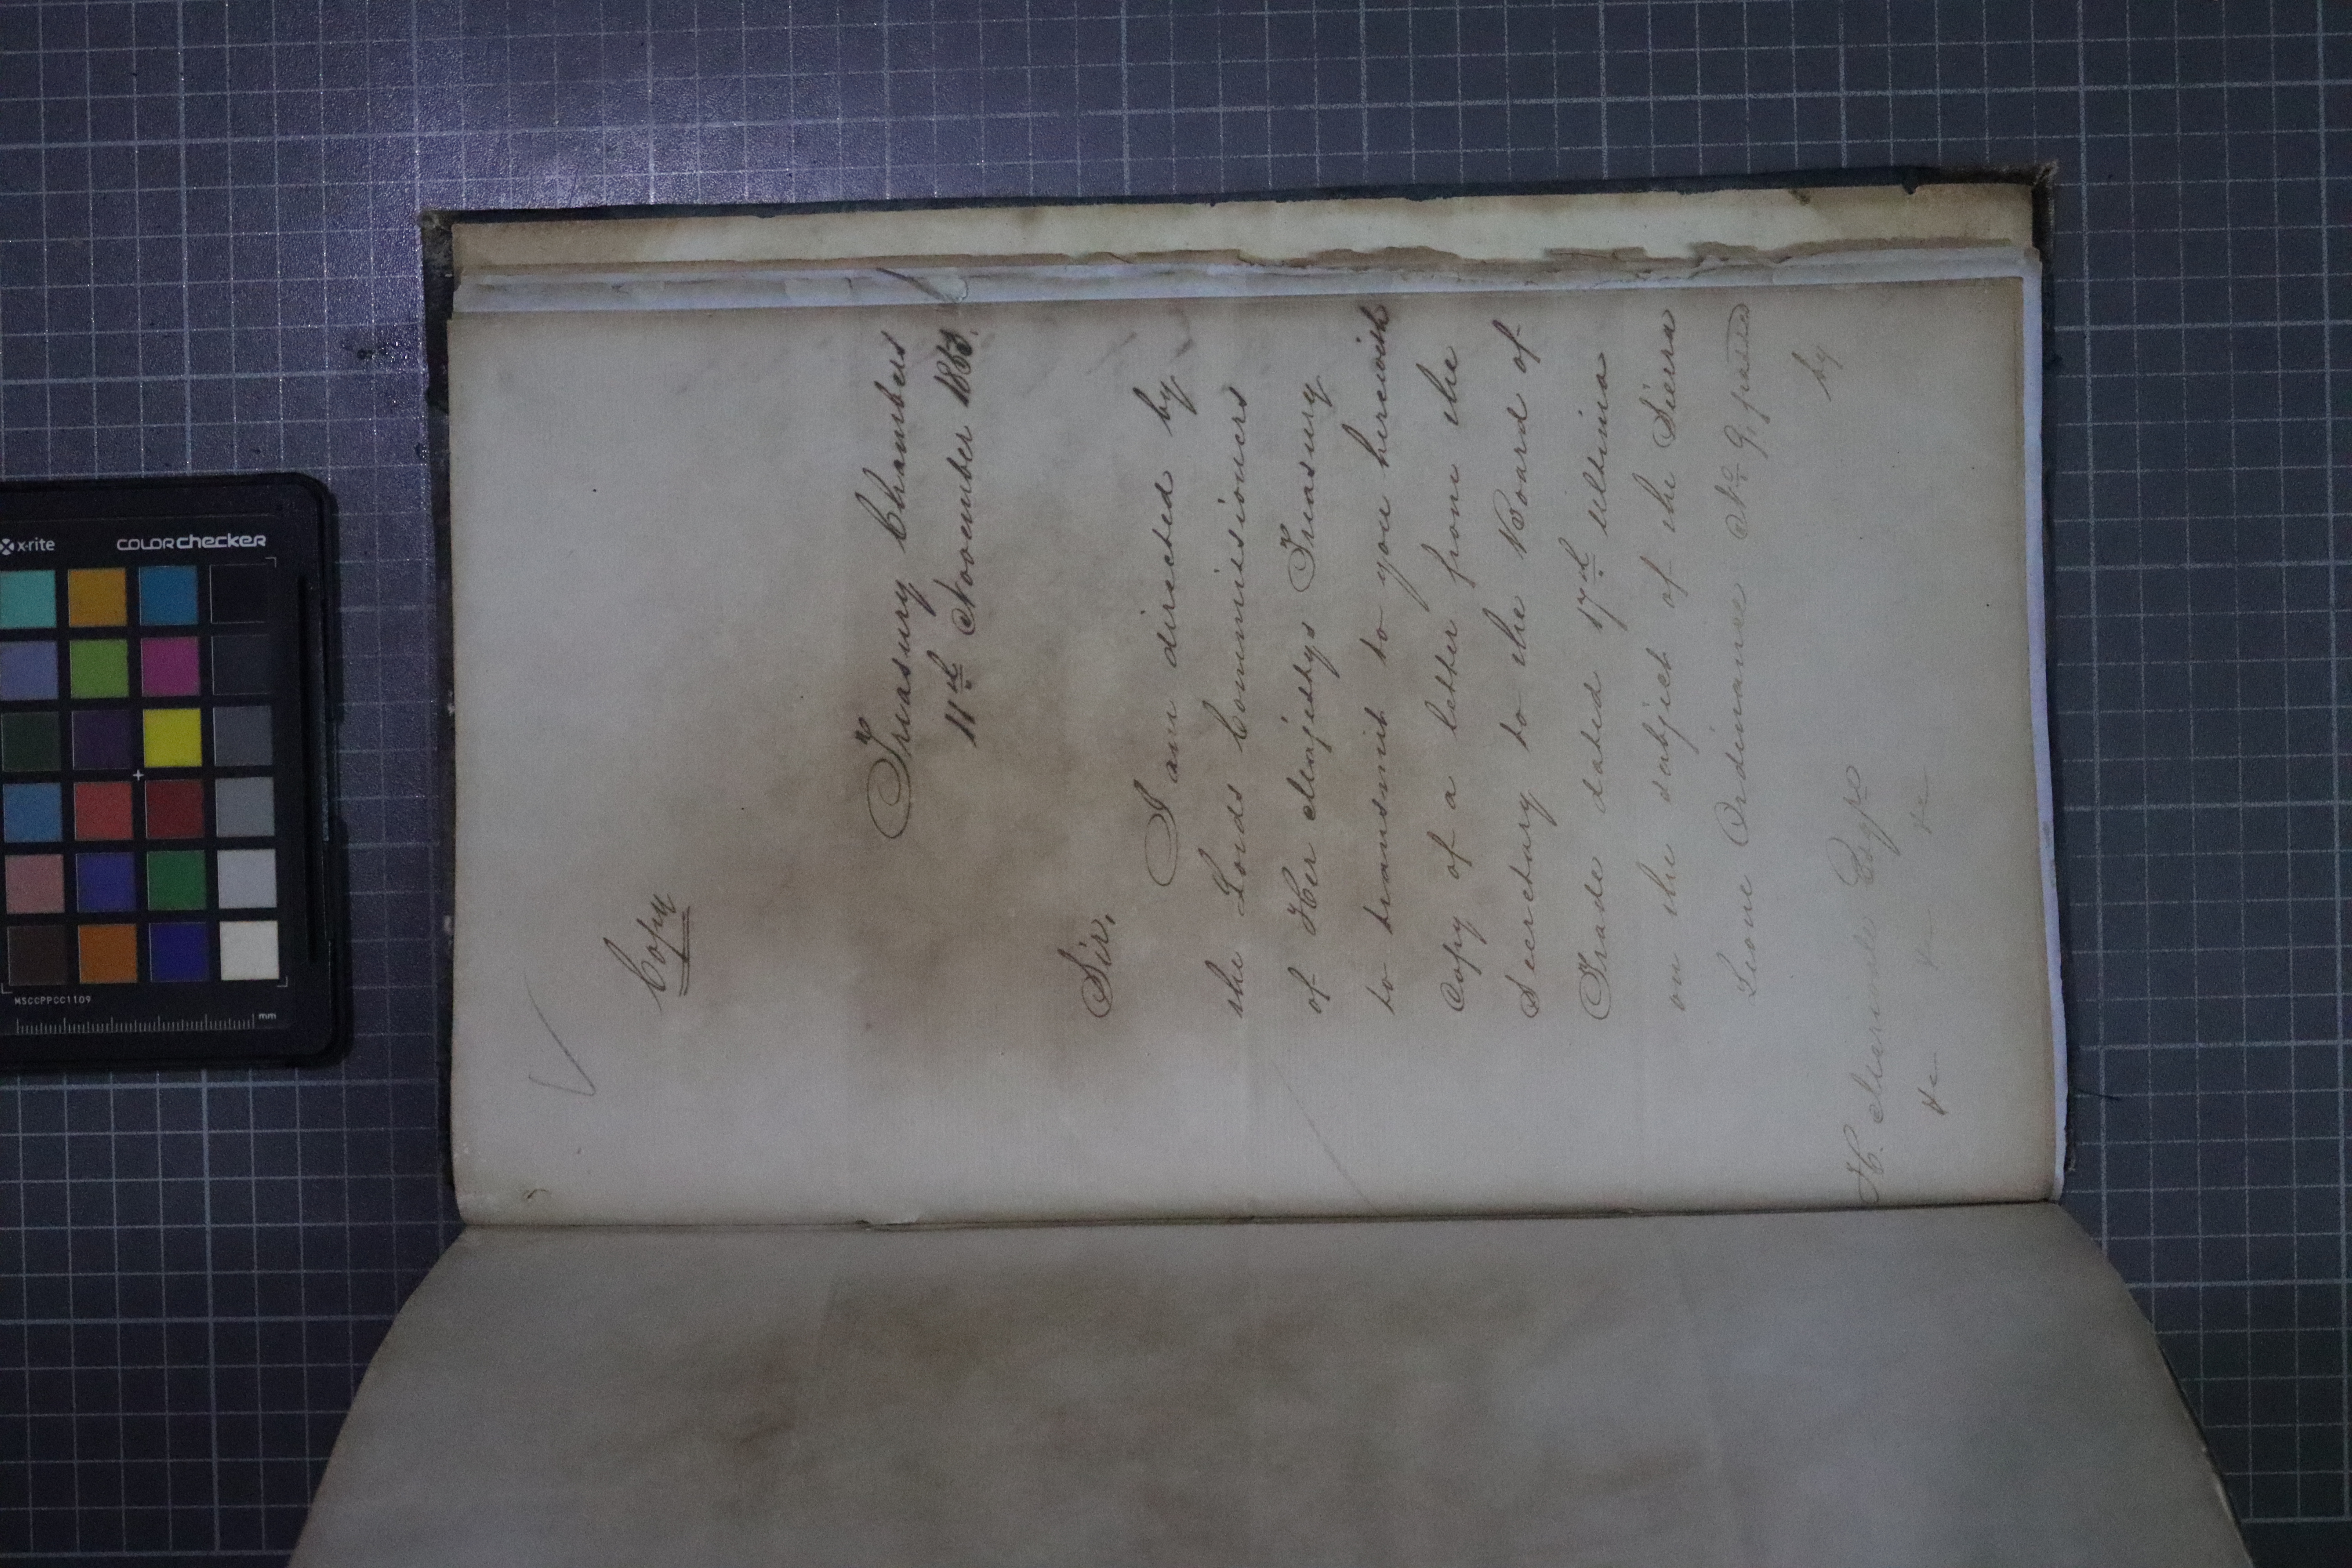 Copy
Treasury Chambers
11th November 185
Sir,
I am directed by
the Lords Commissioners
of Her Majestys Treasury
to transmit to you herewith
Copy of a letter from the
Secretary to the Board of
Trade dated 17th ultimo
on the subject of the Sierra
Leone Ordinance No 9, passed
by
H. Merivale Esqre
&c &c &c
x-rite
colorchecker
MSCCPPCC1109
mm